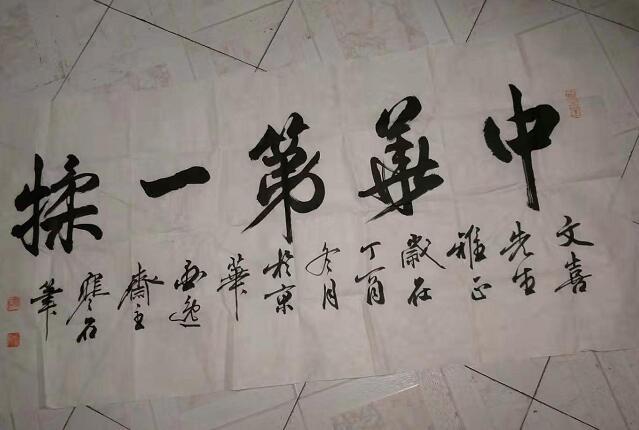 中華第一揉
文喜
先生
雅正
歲在
丁酉
冬月
於京
華
齋主
寒石
筆